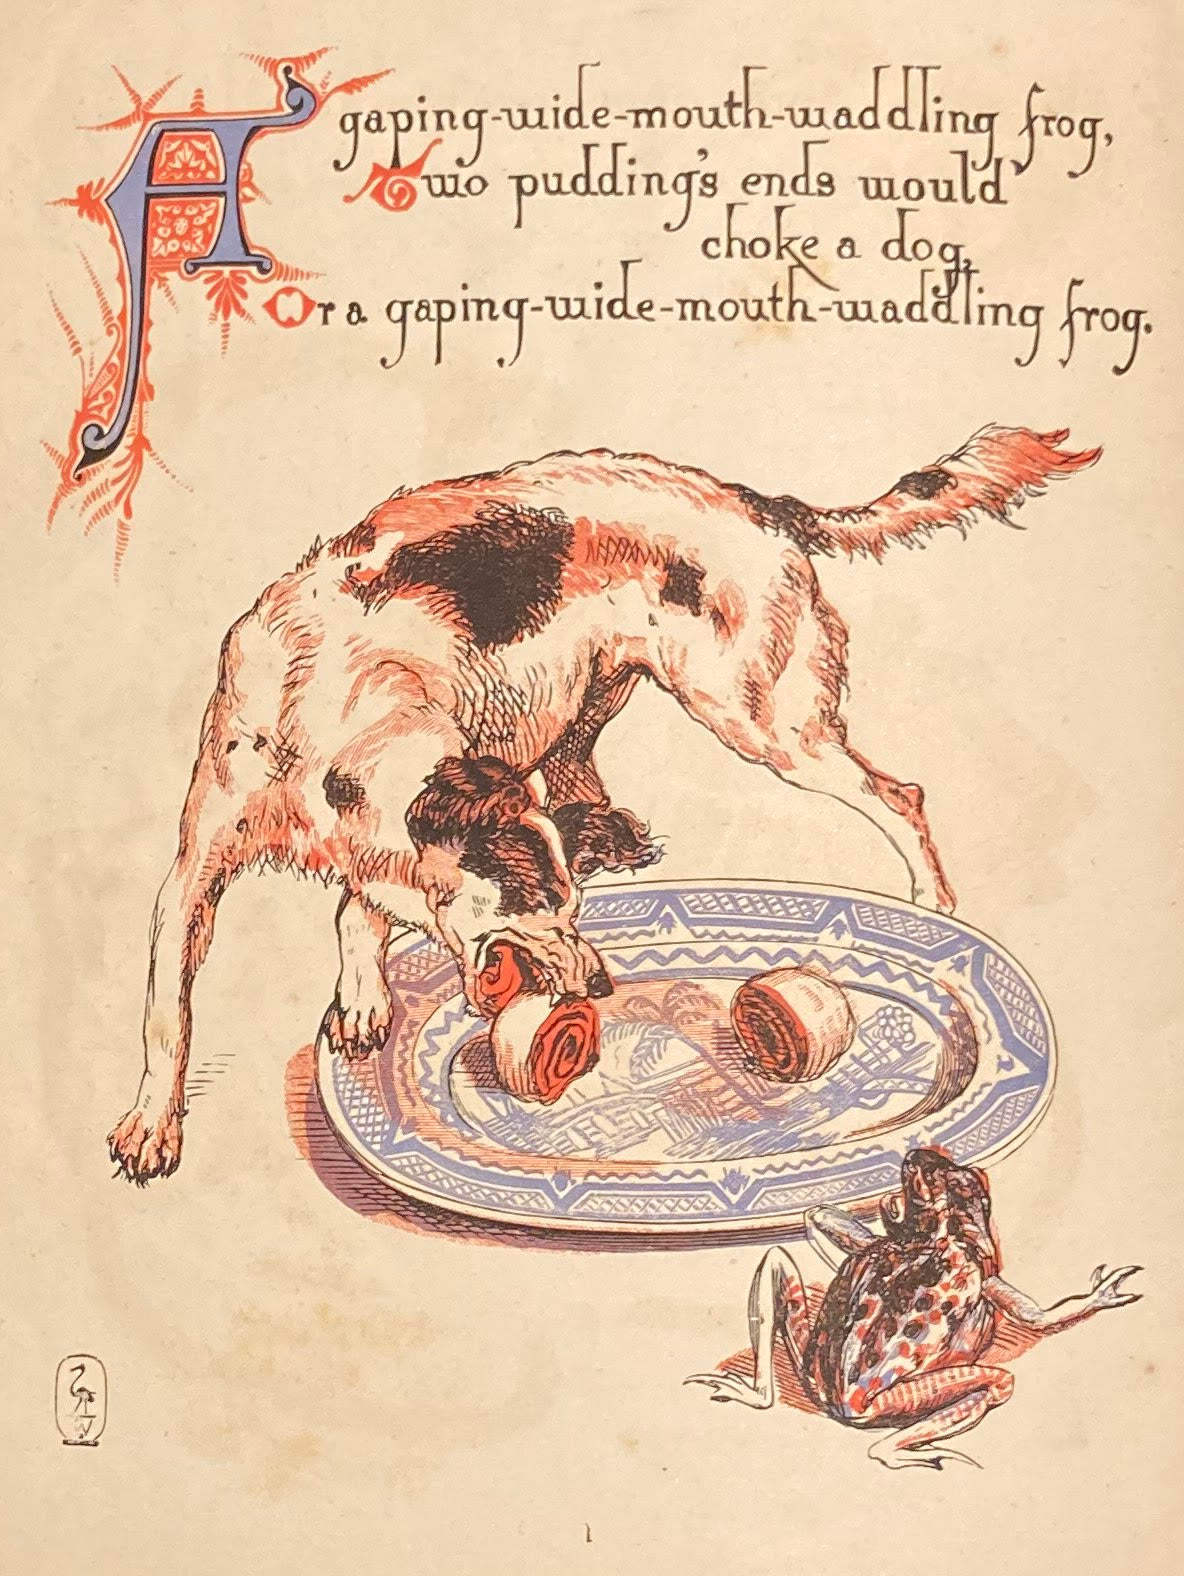 A gaping-wide-mouth-waddling frog,
Two pudding's ends would
choke a dog,
Or a gaping-wide-mouth-waddling frog.
1